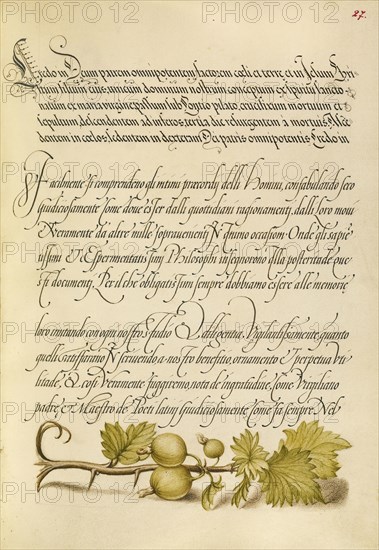 27.
Credo in Deum patrem omnipotentem factorem coeli et terre et in Jesum Chri
stum filium eius unicum dominum nostrum conceptum ex spiritu sancto
natum ex maria virgine passum sub Pontio pilato crucifixum mortuum et
sepultum, descendentem ad inferos tertia die resurgentem à mortuis Asce
dentem in celos, sedentem ad dexteram Dei patris omnipotentis. Credo in
Facilmente si comprendeno gli intimi precordij delli Homini, confabulando sero
giudiciosamente, come dove esser dalli quotidiani ragionamenti, dalli loro moui
Veramente da altre mille
Et Esperimentatissimi Philosophi insegnorono alla posteritade que
sti documenti. Per il che obligatissimi sempre dobbiamo essere alle memorie
loro imitando con ogni nostro studio E diligentia Vigilantissimamente, quanto
quelli Scriuendo a nostro beneficio, ornamento et perpetua Vti
litade, & cosi Veramente fuggiremo, nota de ingratitudine, Come Virgiliano
padre, et Maestro de Poeti latini giudiciosamente Come fa sempre. Nel